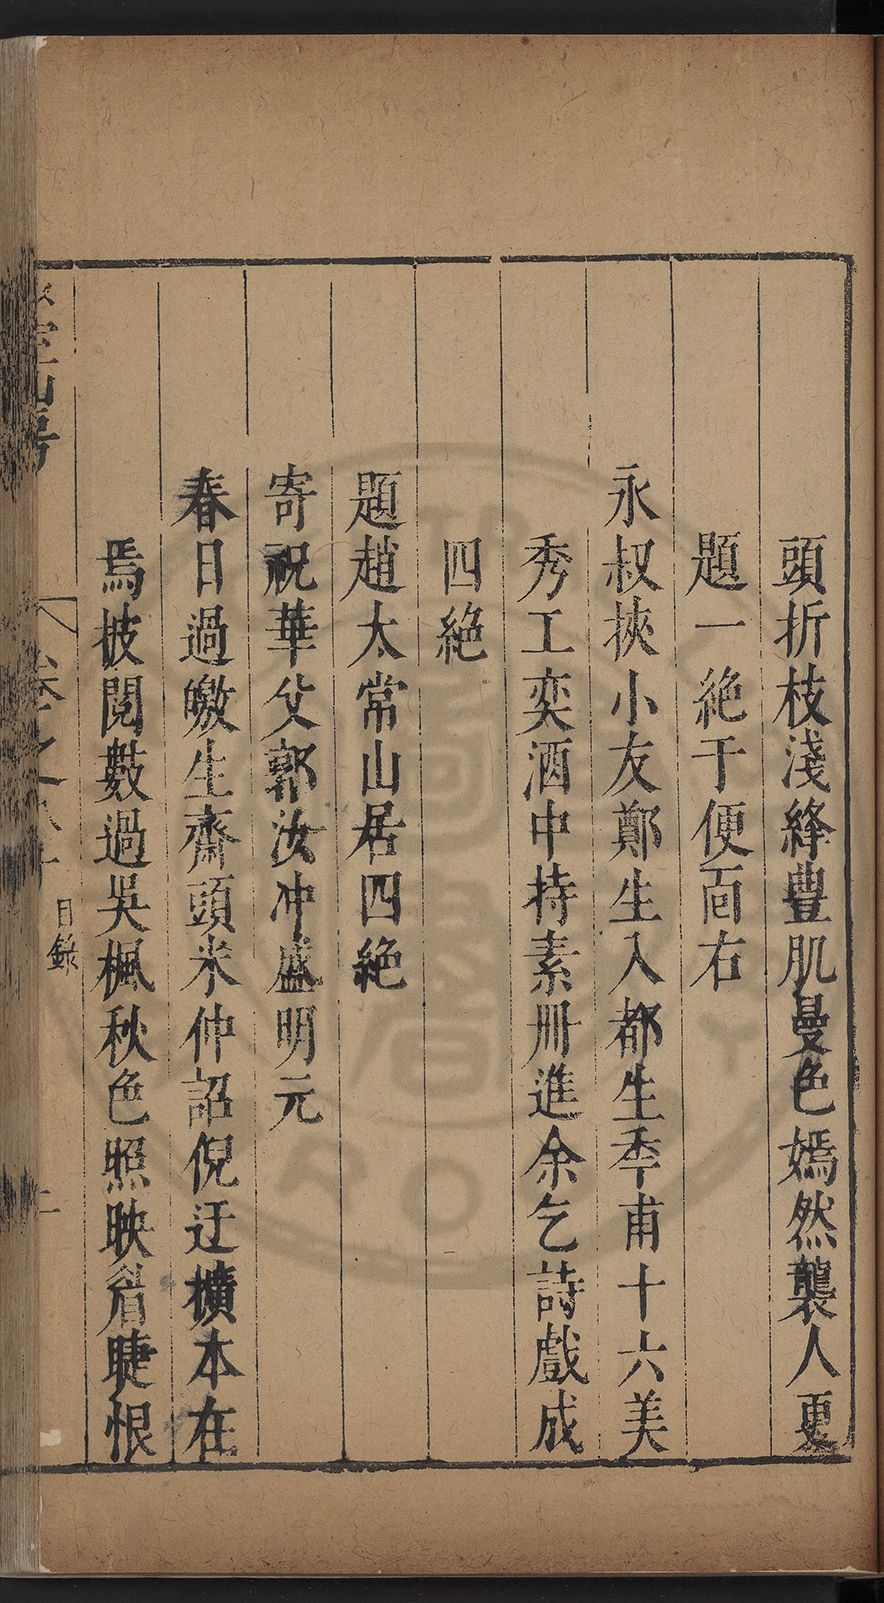 頭折枝淺絳豊肌曼色嫣然襲人更
題一絕于便面右
永叔挾小友鄭生入都生年甫十六美
秀工奕酒中持素冊進余乞詩戲成
四絕
題趙太常山居四絕
寄祝華父郭汝冲盛明元
春日過皦生齋頭米仲詔倪迂擴本在
焉披閱數過吳楓秋色照映眉睫恨
山房
卷之
目錄